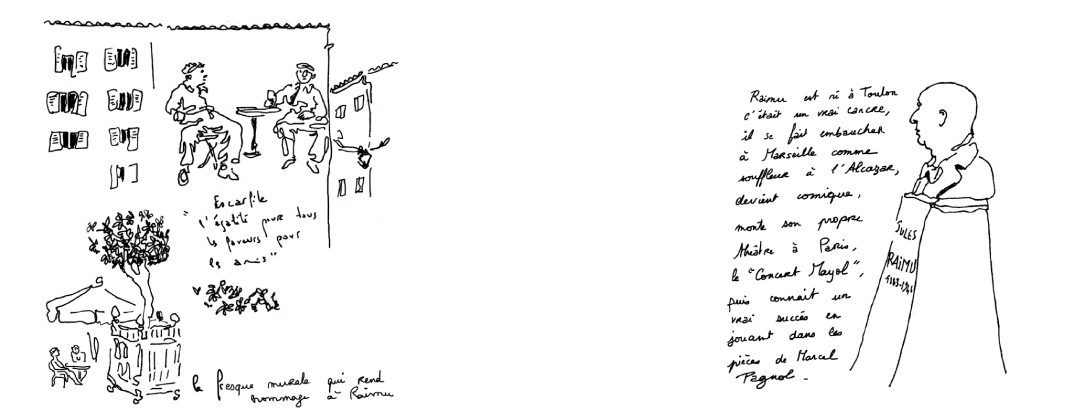 Escarfile
"l'égalité pour tous
les faveurs pour
les amis"
la fresque murale qui rend
hommage à Raimu
Raimu est né à Toulon
c'était un vrai cancre,
il se fait embaucher
à Marseille comme
souffleur à l'Alcazar,
devient comique,
monte son propre
théâtre à Paris,
le "Concert Mayol",
puis connaît un
vrai succès en
jouant dans les
pièces de Marcel
Pagnol.
JULES
RAIMU